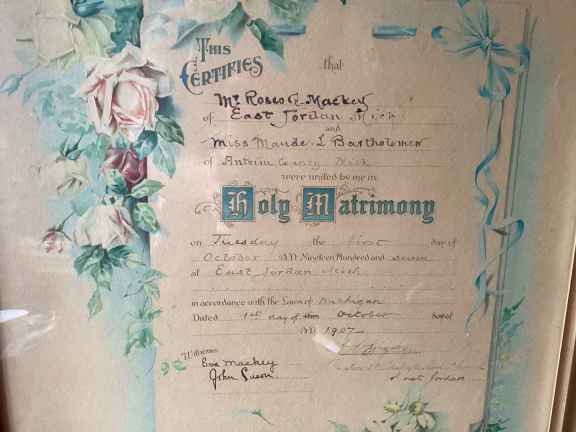 This Certifies
that
Mr Roscoe Mackey
of East Jordan Mich
and
Miss Maude L Bartholomew
of Antrim County Mich
were united by me in
Holy Matrimony
on Tuesday the first day of
October A.D. Nineteen Hundred and seven
at East Jordan Mich
in accordance with the Laws of Michigan
Dated 1st day of October
A.D. 1907
Witnesses
Eva Mackey
John
East Jordan